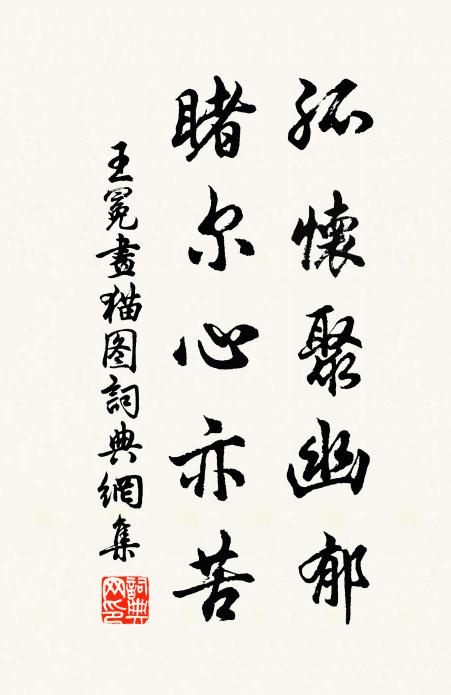 孤懷聚幽郁
睹尔心亦苦
王冕畫猫图詞典網集
詞典网印